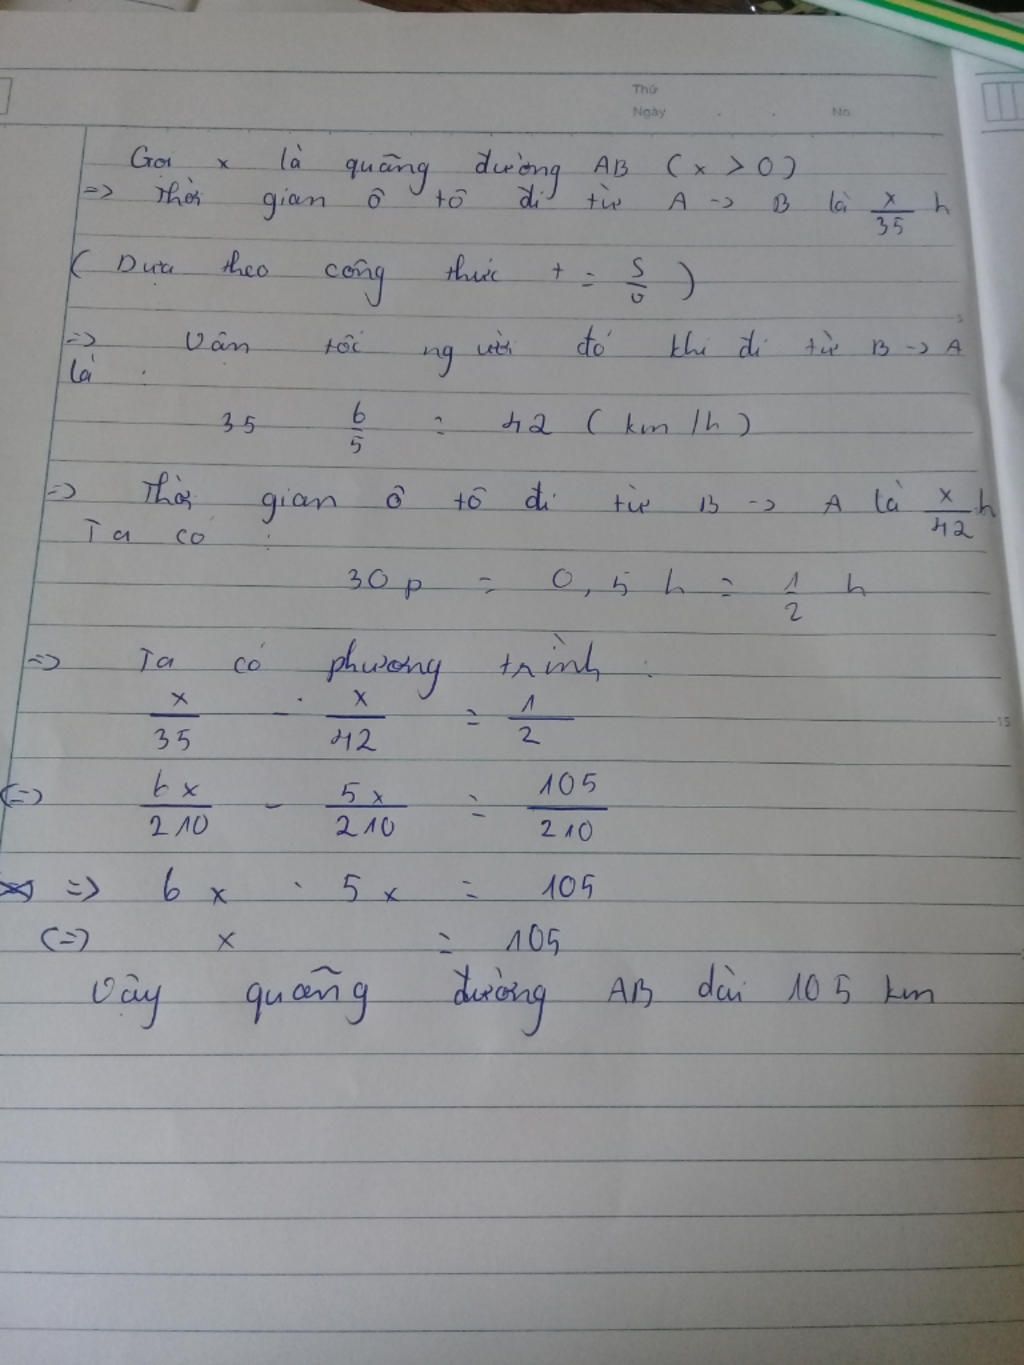 Thứ
Ngày . . No
Gọi x là quãng đường AB ( x > 0 )
=> Thời gian ô tô đi từ A -> B là x/35 h
( Dựa theo công thức t = S/v )
=> Vân tốc người đó khi đi từ B -> A
là :
35 6/5 = 42 ( km/h )
=> Thời gian ô tô đi từ B -> A là x/42 h
Ta có :
30 p = 0,5 h = 1/2 h
=> Ta có phương trình :
x/35 - x/42 = 1/2
15
(=) 6x/210 - 5x/210 = 105/210
=> 6x - 5x = 105
(=) x = 105
Vậy quãng đường AB dài 105 km